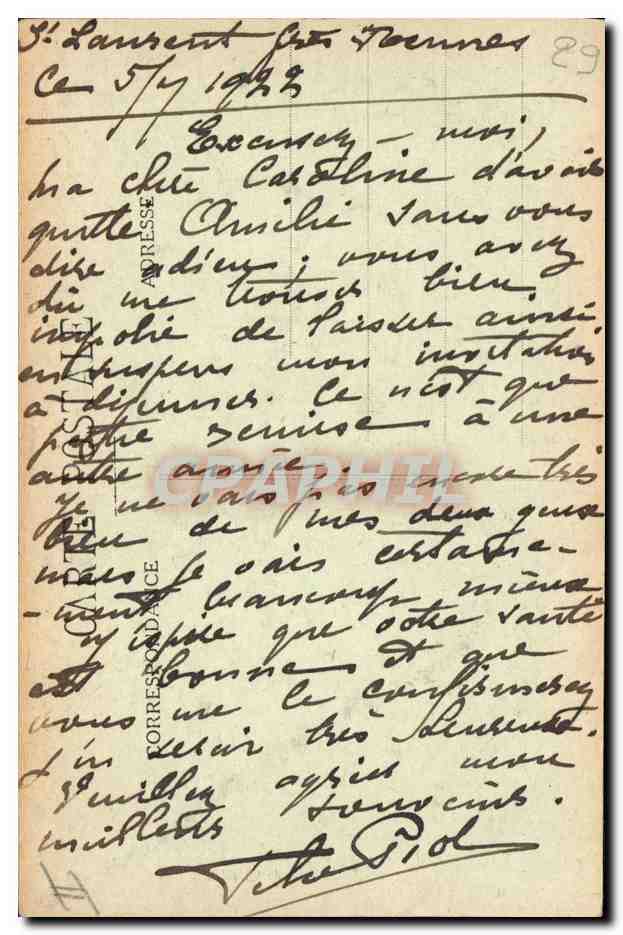 St Laurent près Rennes
29
Ce 5/7 1922
Excusez-moi,
ma chère Caroline d'avoir
quitté Amélie sans vous
dire adieu ; vous avez
dû me trouver bien
impolie de laisser ainsi
en suspens mon invitation
à déjeuner. Ce n'est que
partie remise à une
autre année.
Je ne vais pas encore très
bien de mes deux
mais je vais certaine-
-ment beaucoup mieux
J'espère que votre santé
est bonne et que
vous me le confirmerez
j'en serai très heureuse.
Veuillez agréer mon
meilleurs souvenirs.
CARTE POSTALE
CORRESPONDANCE
ADRESSE
CPAPHIL